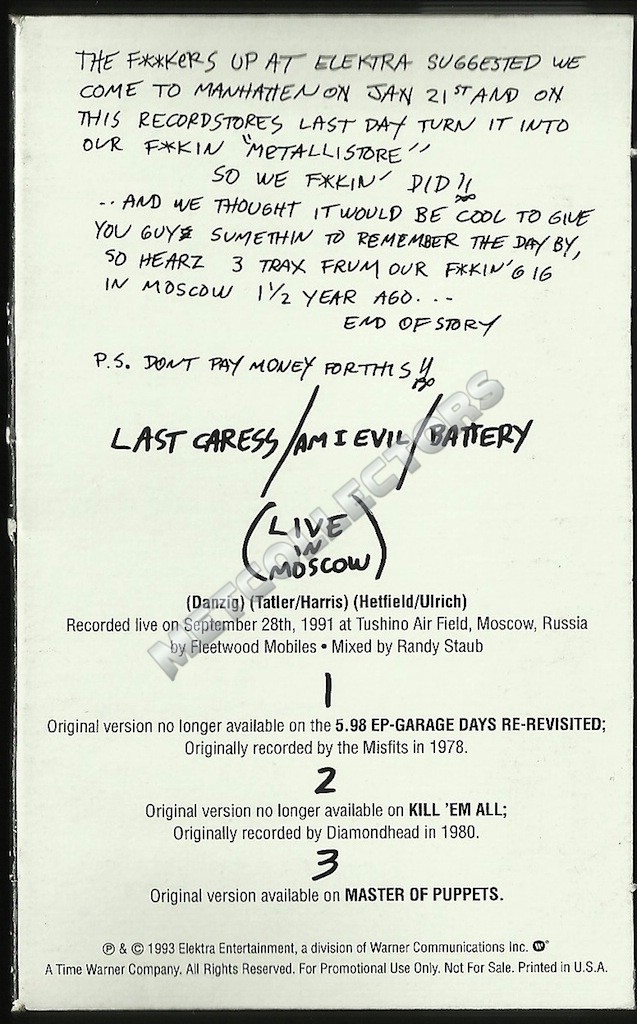 THE F**KERS UP AT ELEKTRA SUGGESTED WE
COME TO MANHATTEN ON JAN 21ST AND ON
THIS RECORDSTORES LAST DAY TURN IT INTO
OUR F*KIN "METALLISTORE"
SO WE F*KIN' DID!!
.. AND WE THOUGHT IT WOULD BE COOL TO GIVE
YOU GUYZ SUMETHIN TO REMEMBER THE DAY BY,
SO HEARZ 3 TRAX FRUM OUR F*KIN' GIG
IN MOSCOW 1 1/2 YEAR AGO...
END OF STORY
P.S. DONT PAY MONEY FOR THIS!!
LAST CARESS/AM I EVIL/BATTERY
(LIVE
IN
MOSCOW)
METCOLLECTORS
(Danzig) (Tatler/Harris) (Hetfield/Ulrich)
Recorded live on September 28th, 1991 at Tushino Air Field, Moscow, Russia
by Fleetwood Mobiles • Mixed by Randy Staub
1
Original version no longer available on the 5.98 EP-GARAGE DAYS RE-REVISITED;
Originally recorded by the Misfits in 1978.
2
Original version no longer available on KILL 'EM ALL;
Originally recorded by Diamondhead in 1980.
3
Original version available on MASTER OF PUPPETS.
℗ & © 1993 Elektra Entertainment, a division of Warner Communications Inc.
A Time Warner Company. All Rights Reserved. For Promotional Use Only. Not For Sale. Printed in U.S.A.